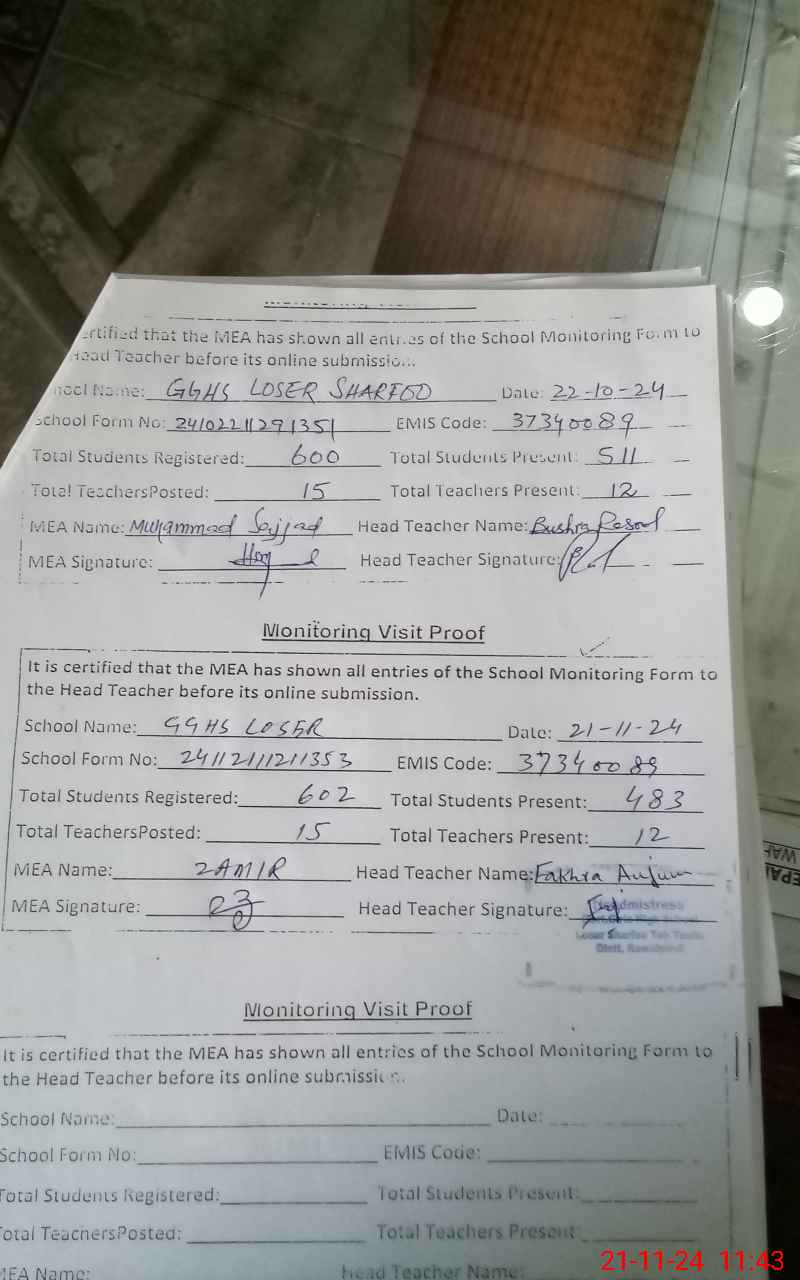 ertified that the MEA has shown all entries of the School Monitoring Form to
Head Teacher before its online submissio...
hool Name: GGHS LOSER SHARFOO Date: 22-10-24
School Form No: 24102211291351 EMIS Code: 37340089
Total Students Registered: 600 Total Students Present: 511
Total TeachersPosted: 15 Total Teachers Present: 12
MEA Name: Muhammad Sajjad Head Teacher Name: Bushra Rasool
MEA Signature: Head Teacher Signature:
Monitoring Visit Proof
It is certified that the MEA has shown all entries of the School Monitoring Form to
the Head Teacher before its online submission.
School Name: GGHS LOSER Date: 21-11-24
School Form No: 24112111211353 EMIS Code: 37340089
Total Students Registered: 602 Total Students Present: 483
Total TeachersPosted: 15 Total Teachers Present: 12
MEA Name: ZAMIR Head Teacher Name: Fakhra Anjum
MEA Signature: Head Teacher Signature:
Headmistress
Monitoring Visit Proof
It is certified that the MEA has shown all entries of the School Monitoring Form to
the Head Teacher before its online submission.
School Name: Date:
School Form No: EMIS Code:
Total Students Registered: Total Students Present:
Total TeachersPosted: Total Teachers Present:
MEA Name: Head Teacher Name:
21-11-24 11:43